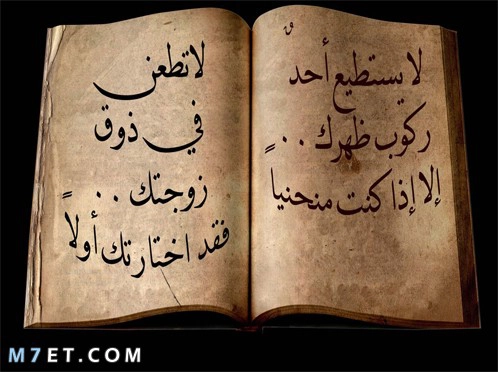 لا تستطيع أحدٌ
ركوب ظهرك . .
إلا إذا كنت منحنياً
لا تطعن
في ذوق
زوجتك . .
فقد اختارتك أولاً
M7ET.COM